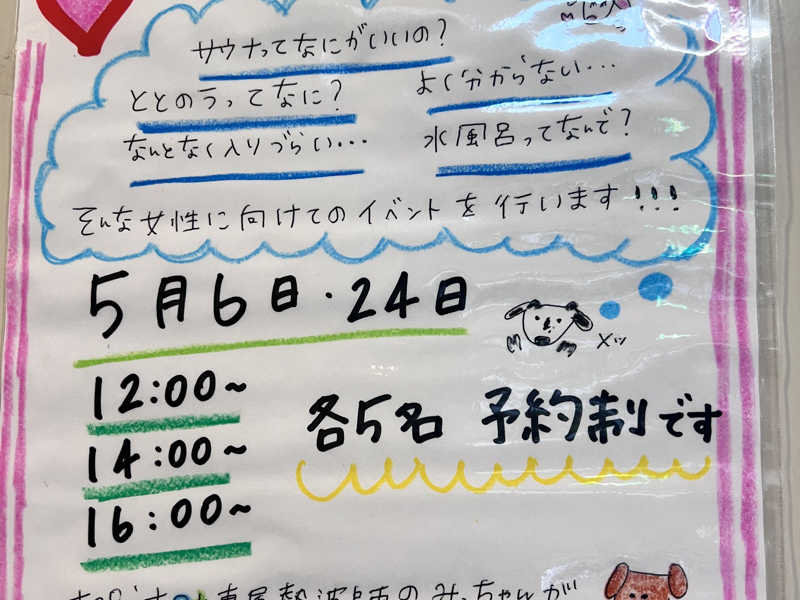 サウナってなにがいいの?
よく分からない...
ととのうってなに?
水風呂ってなんで?
なんとなく入りづらい...
そんな女性に向けてのイベントを行います!!!
5月6日・24日
メッ
12:00~
14:00~
16:00~
各5名 予約制です
専属熱波師のみっちゃんが